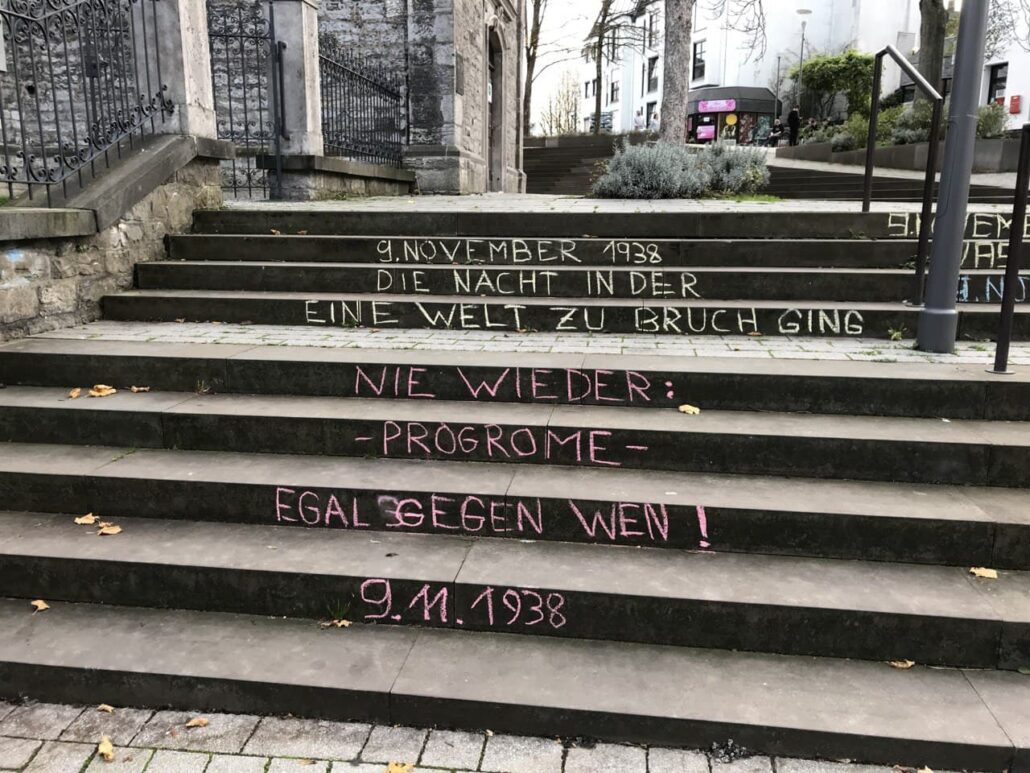 9. NOVEMBER 1938
DIE NACHT IN DER
EINE WELT ZU BRUCH GING
NIE WIEDER:
- PROGROME -
EGAL GEGEN WEN!
9.11.1938
9. NOVEMBE